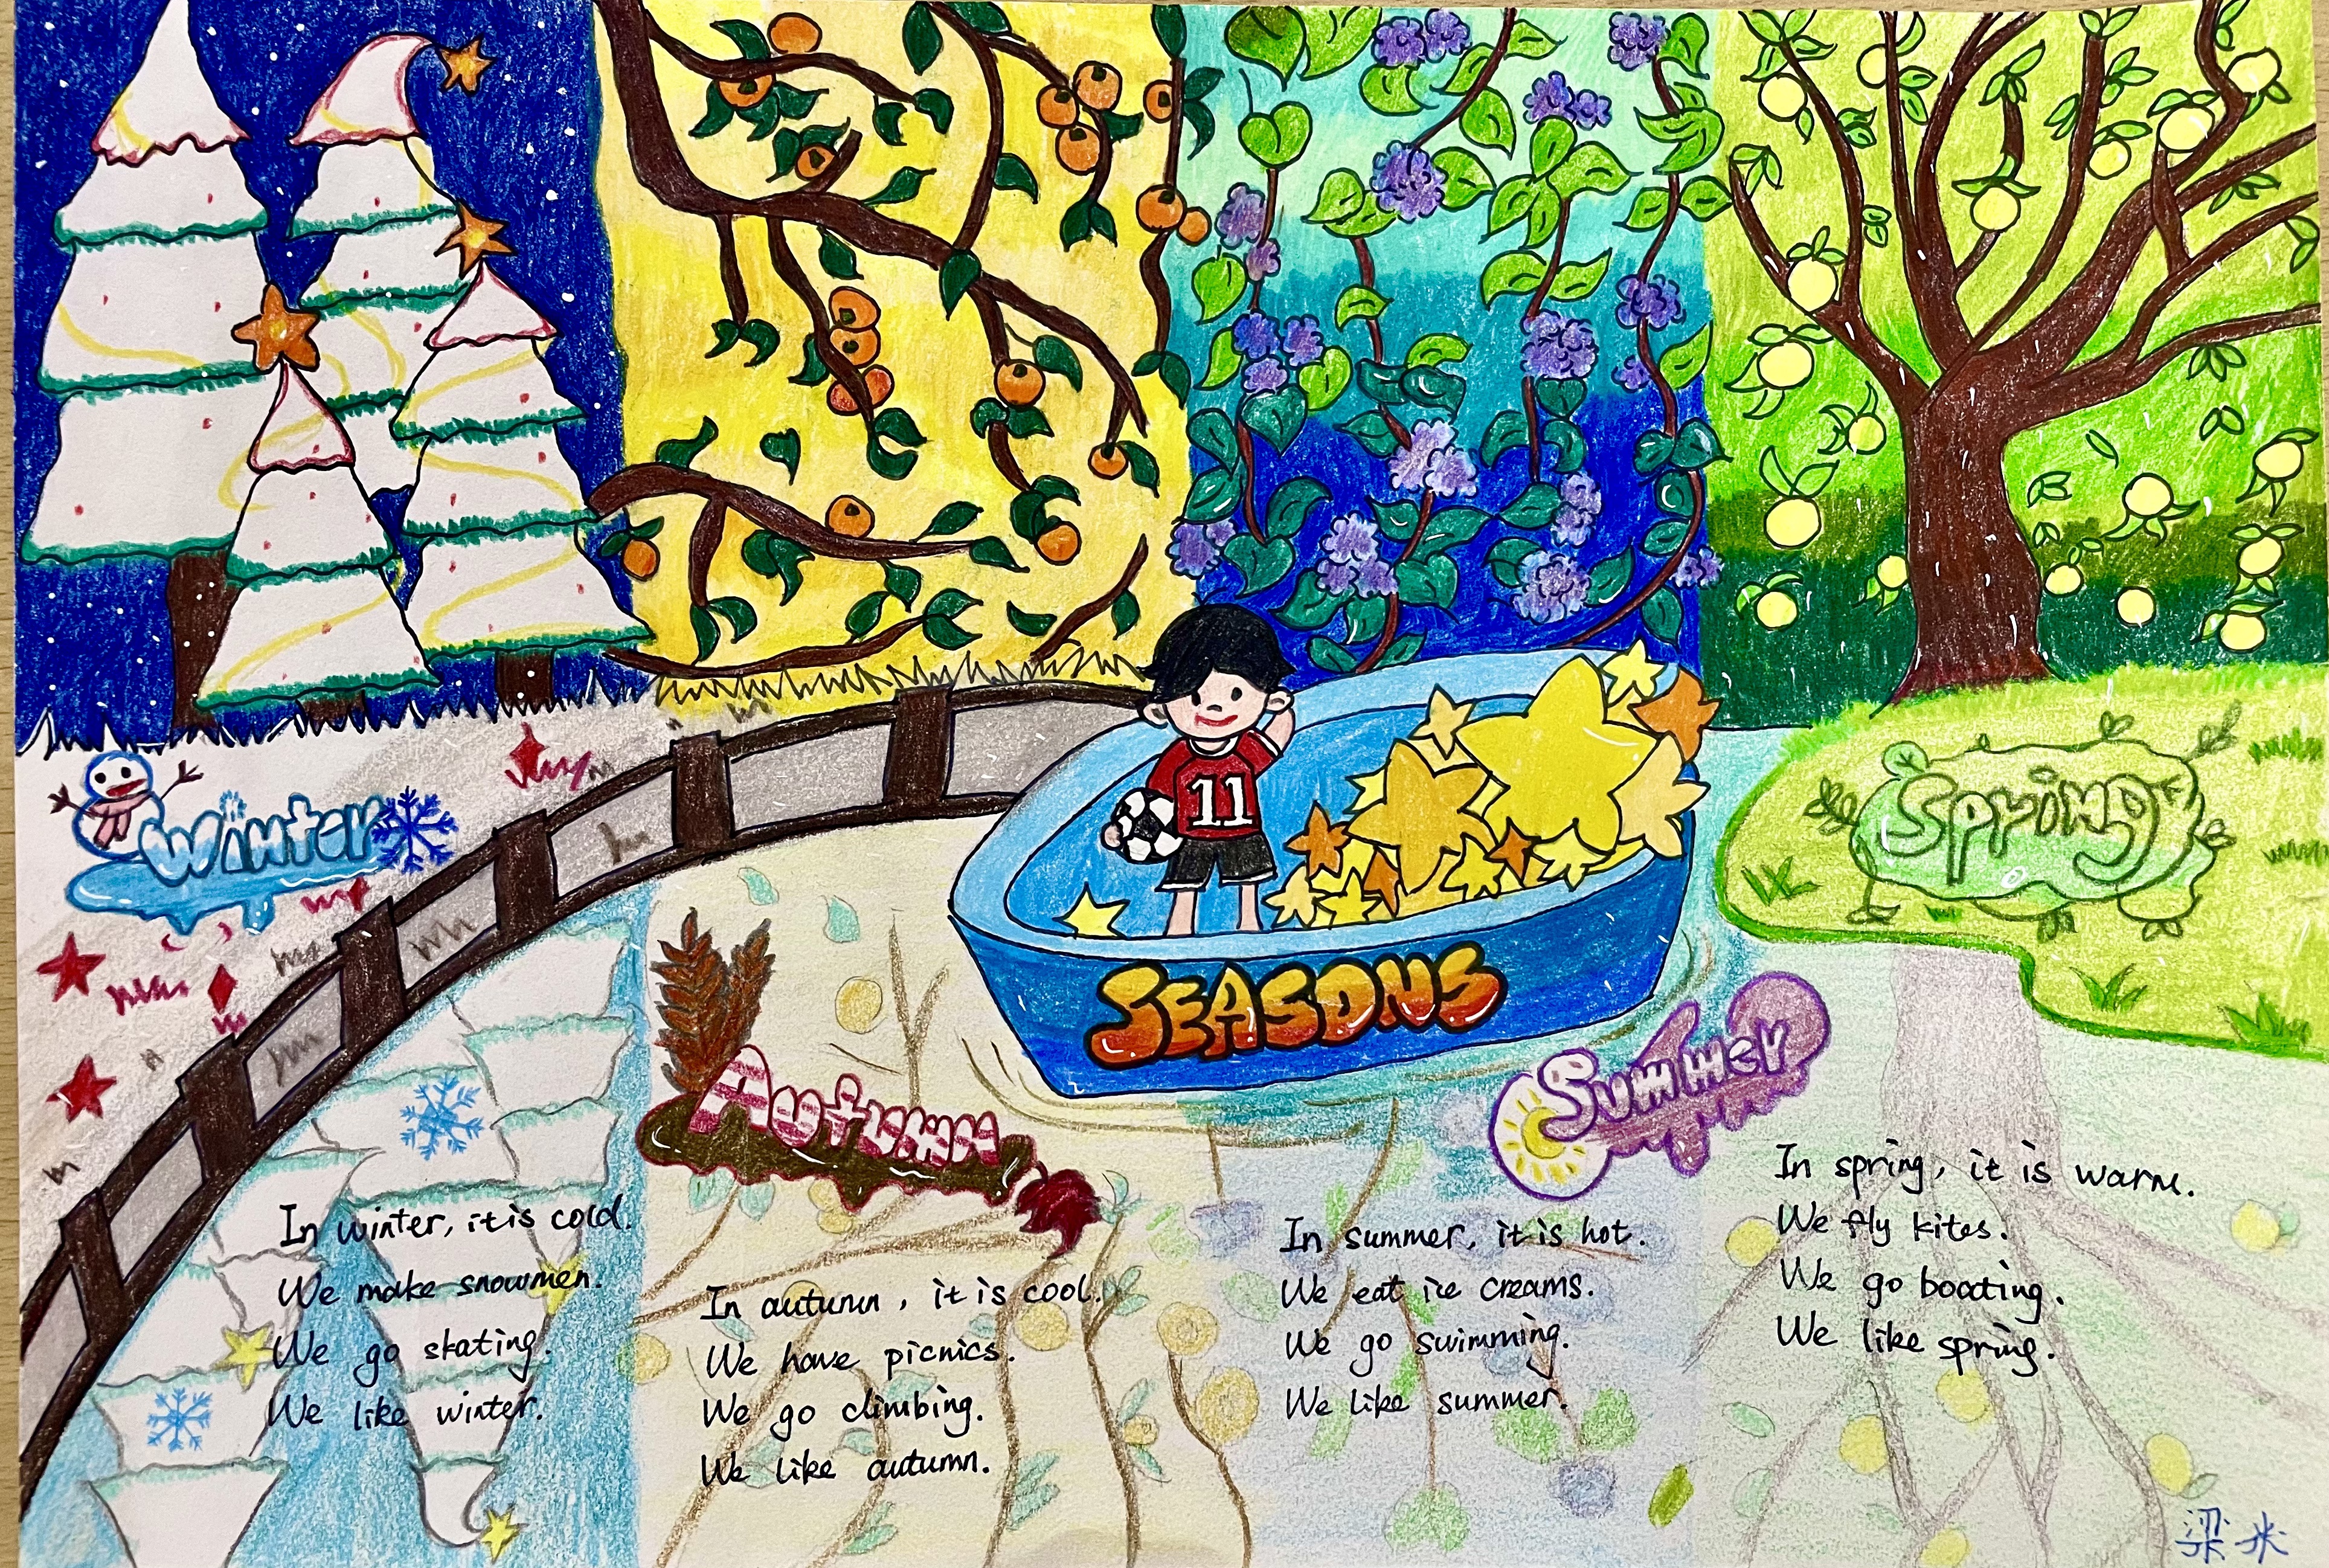 11
SEASONS
Winter
Autumn
Summer
Spring
In winter, it is cold.
We make snowmen.
We go skating.
We like winter.
In autumn, it is cool.
We have picnics.
We go climbing.
We like autumn.
In summer, it is hot.
We eat ice creams.
We go swimming.
We like summer.
In spring, it is warm.
We fly kites.
We go boating.
We like spring.